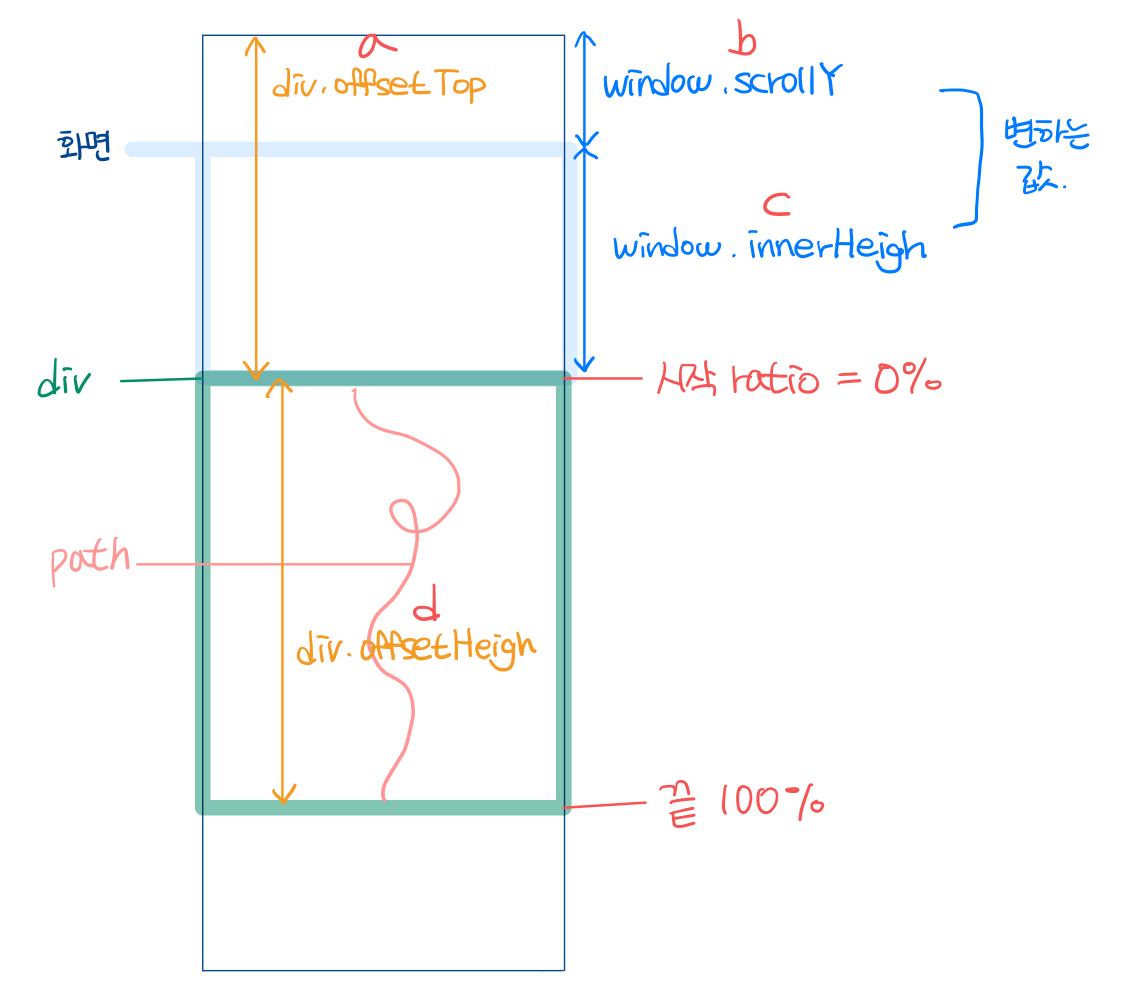 a
div.offsetTop
b
window.scrollY
화면
변하는
값.
c
window.innerHeigh
div
시작 ratio = 0%
path
d
div.offsetHeigh
끝 100%